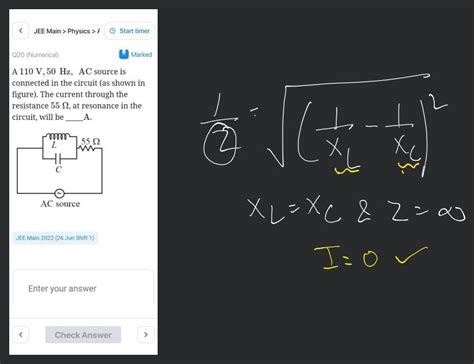 JEE Main > Physics > A
Start timer
Q20 (Numerical)
Marked
A 110 V, 50 Hz, AC source is
connected in the circuit (as shown in
figure). The current through the
resistance 55 Ω, at resonance in the
circuit, will be ____A.
L
55 Ω
C
AC source
JEE Main 2022 (26 Jun Shift 1)
Enter your answer
Check Answer
1/2 = √(1/X_L - 1/X_C)^2
X_L = X_C & Z = ∞
I = 0 ✓